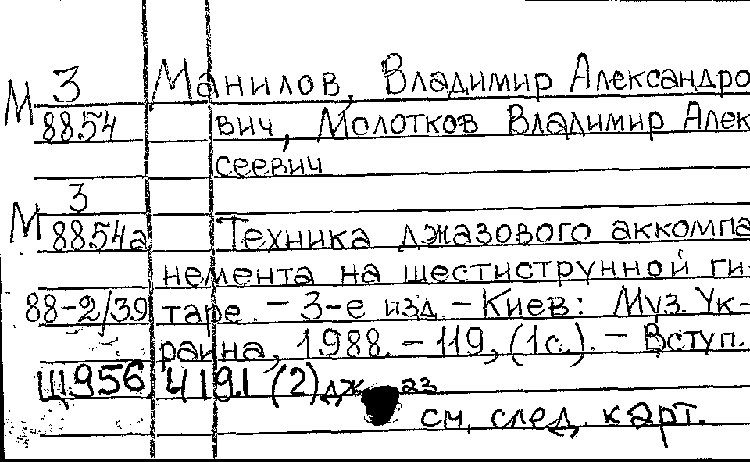 М 3 Манилов, Владимир Александро
8854 вич, Молотков Владимир Алек
сеевич
М 3
8854а Техника джазового аккомпа
немента на шестиструнной ги-
88-2/39 таре. - 3-е изд. - Киев: Муз. Ук-
раина, 1988. - 119, (1с.). - Вступ.
Щ956.419.1 (2) джаз
см. след. карт.